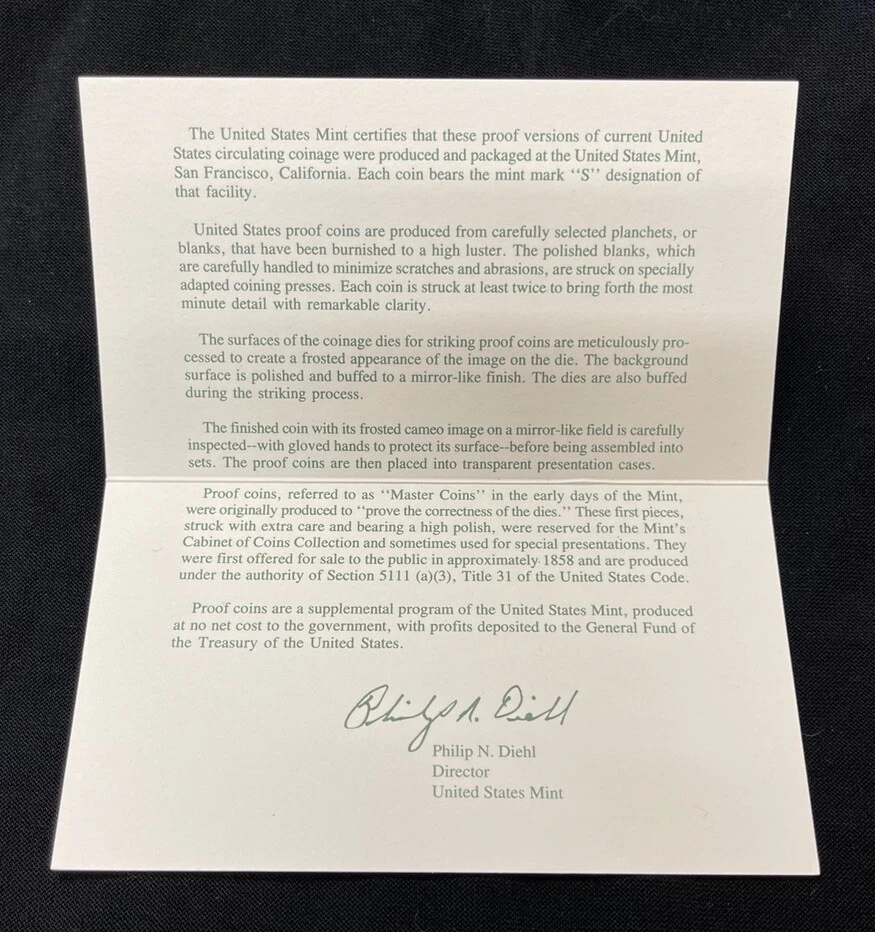 The United States Mint certifies that these proof versions of current United
States circulating coinage were produced and packaged at the United States Mint,
San Francisco, California. Each coin bears the mint mark ‘‘S’’ designation of
that facility.
United States proof coins are produced from carefully selected planchets, or
blanks, that have been burnished to a high luster. The polished blanks, which
are carefully handled to minimize scratches and abrasions, are struck on specially
adapted coining presses. Each coin is struck at least twice to bring forth the most
minute detail with remarkable clarity.
The surfaces of the coinage dies for striking proof coins are meticulously pro-
cessed to create a frosted appearance of the image on the die. The background
surface is polished and buffed to a mirror-like finish. The dies are also buffed
during the striking process.
The finished coin with its frosted cameo image on a mirror-like field is carefully
inspected--with gloved hands to protect its surface--before being assembled into
sets. The proof coins are then placed into transparent presentation cases.
Proof coins, referred to as ‘‘Master Coins’’ in the early days of the Mint,
were originally produced to ‘‘prove the correctness of the dies.’’ These first pieces,
struck with extra care and bearing a high polish, were reserved for the Mint’s
Cabinet of Coins Collection and sometimes used for special presentations. They
were first offered for sale to the public in approximately 1858 and are produced
under the authority of Section 5111 (a)(3), Title 31 of the United States Code.
Proof coins are a supplemental program of the United States Mint, produced
at no net cost to the government, with profits deposited to the General Fund of
the Treasury of the United States.
Philip N. Diehl
Philip N. Diehl
Director
United States Mint